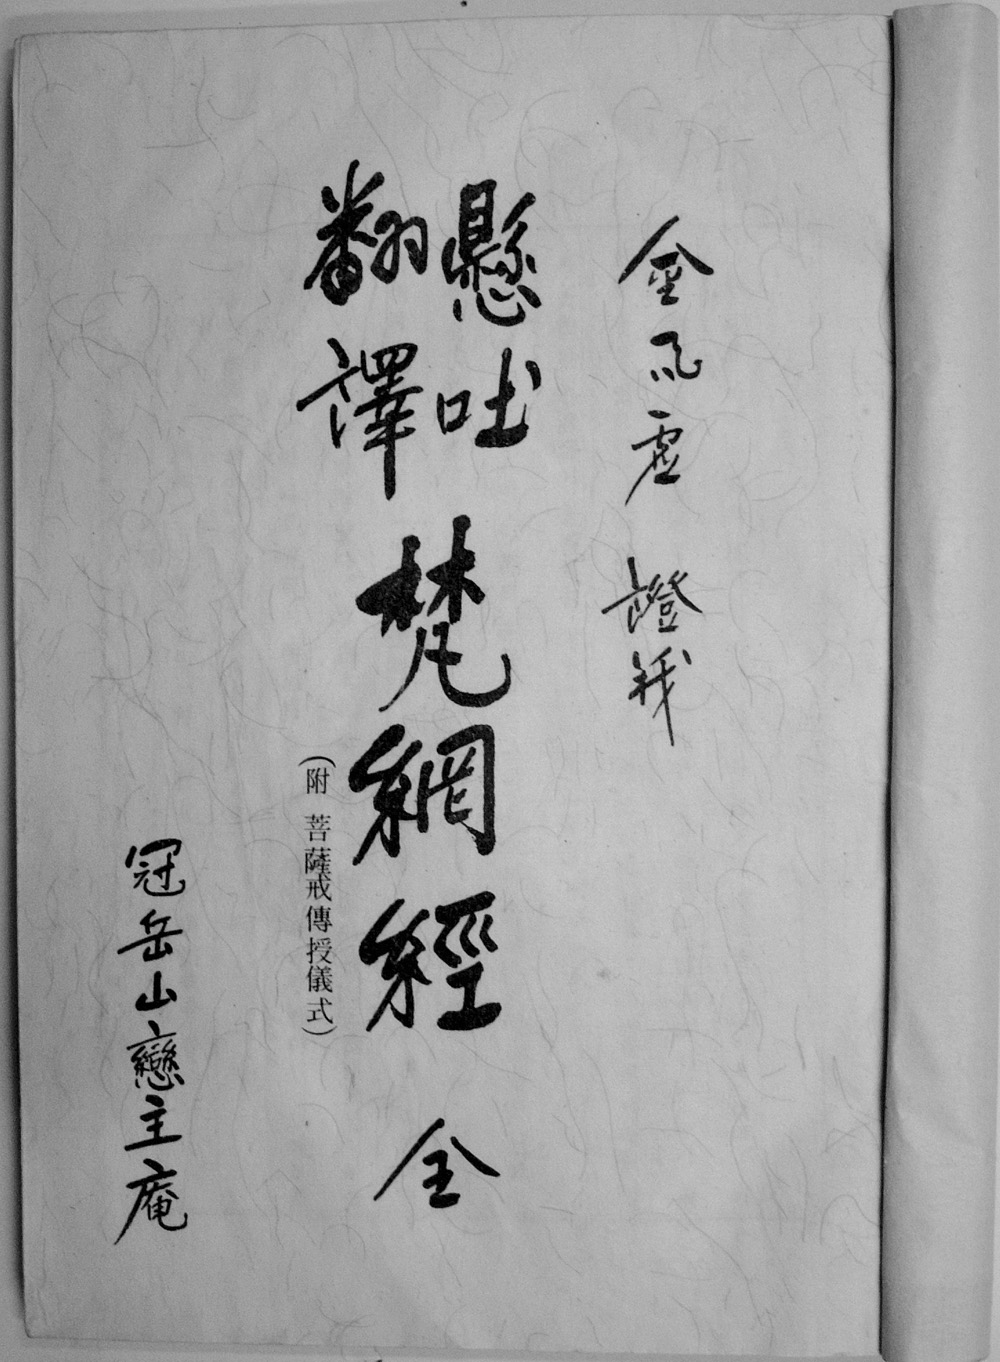 金虛 證義
懸吐
翻譯
梵網經 全
(附 菩薩戒傳授儀式)
冠岳山戀主庵